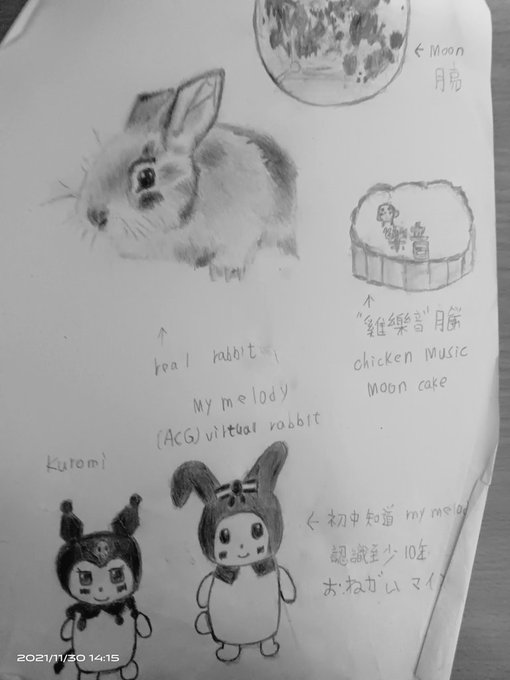 ← Moon
月亮
樂音
"雞樂音"月
chicken music
moon cake
real rabbit
My melody
(ACG) virtual rabbit
Kuromi
← 初中知道 my melod
認識至少10年
おねがい マイ
2021/11/30 14:15